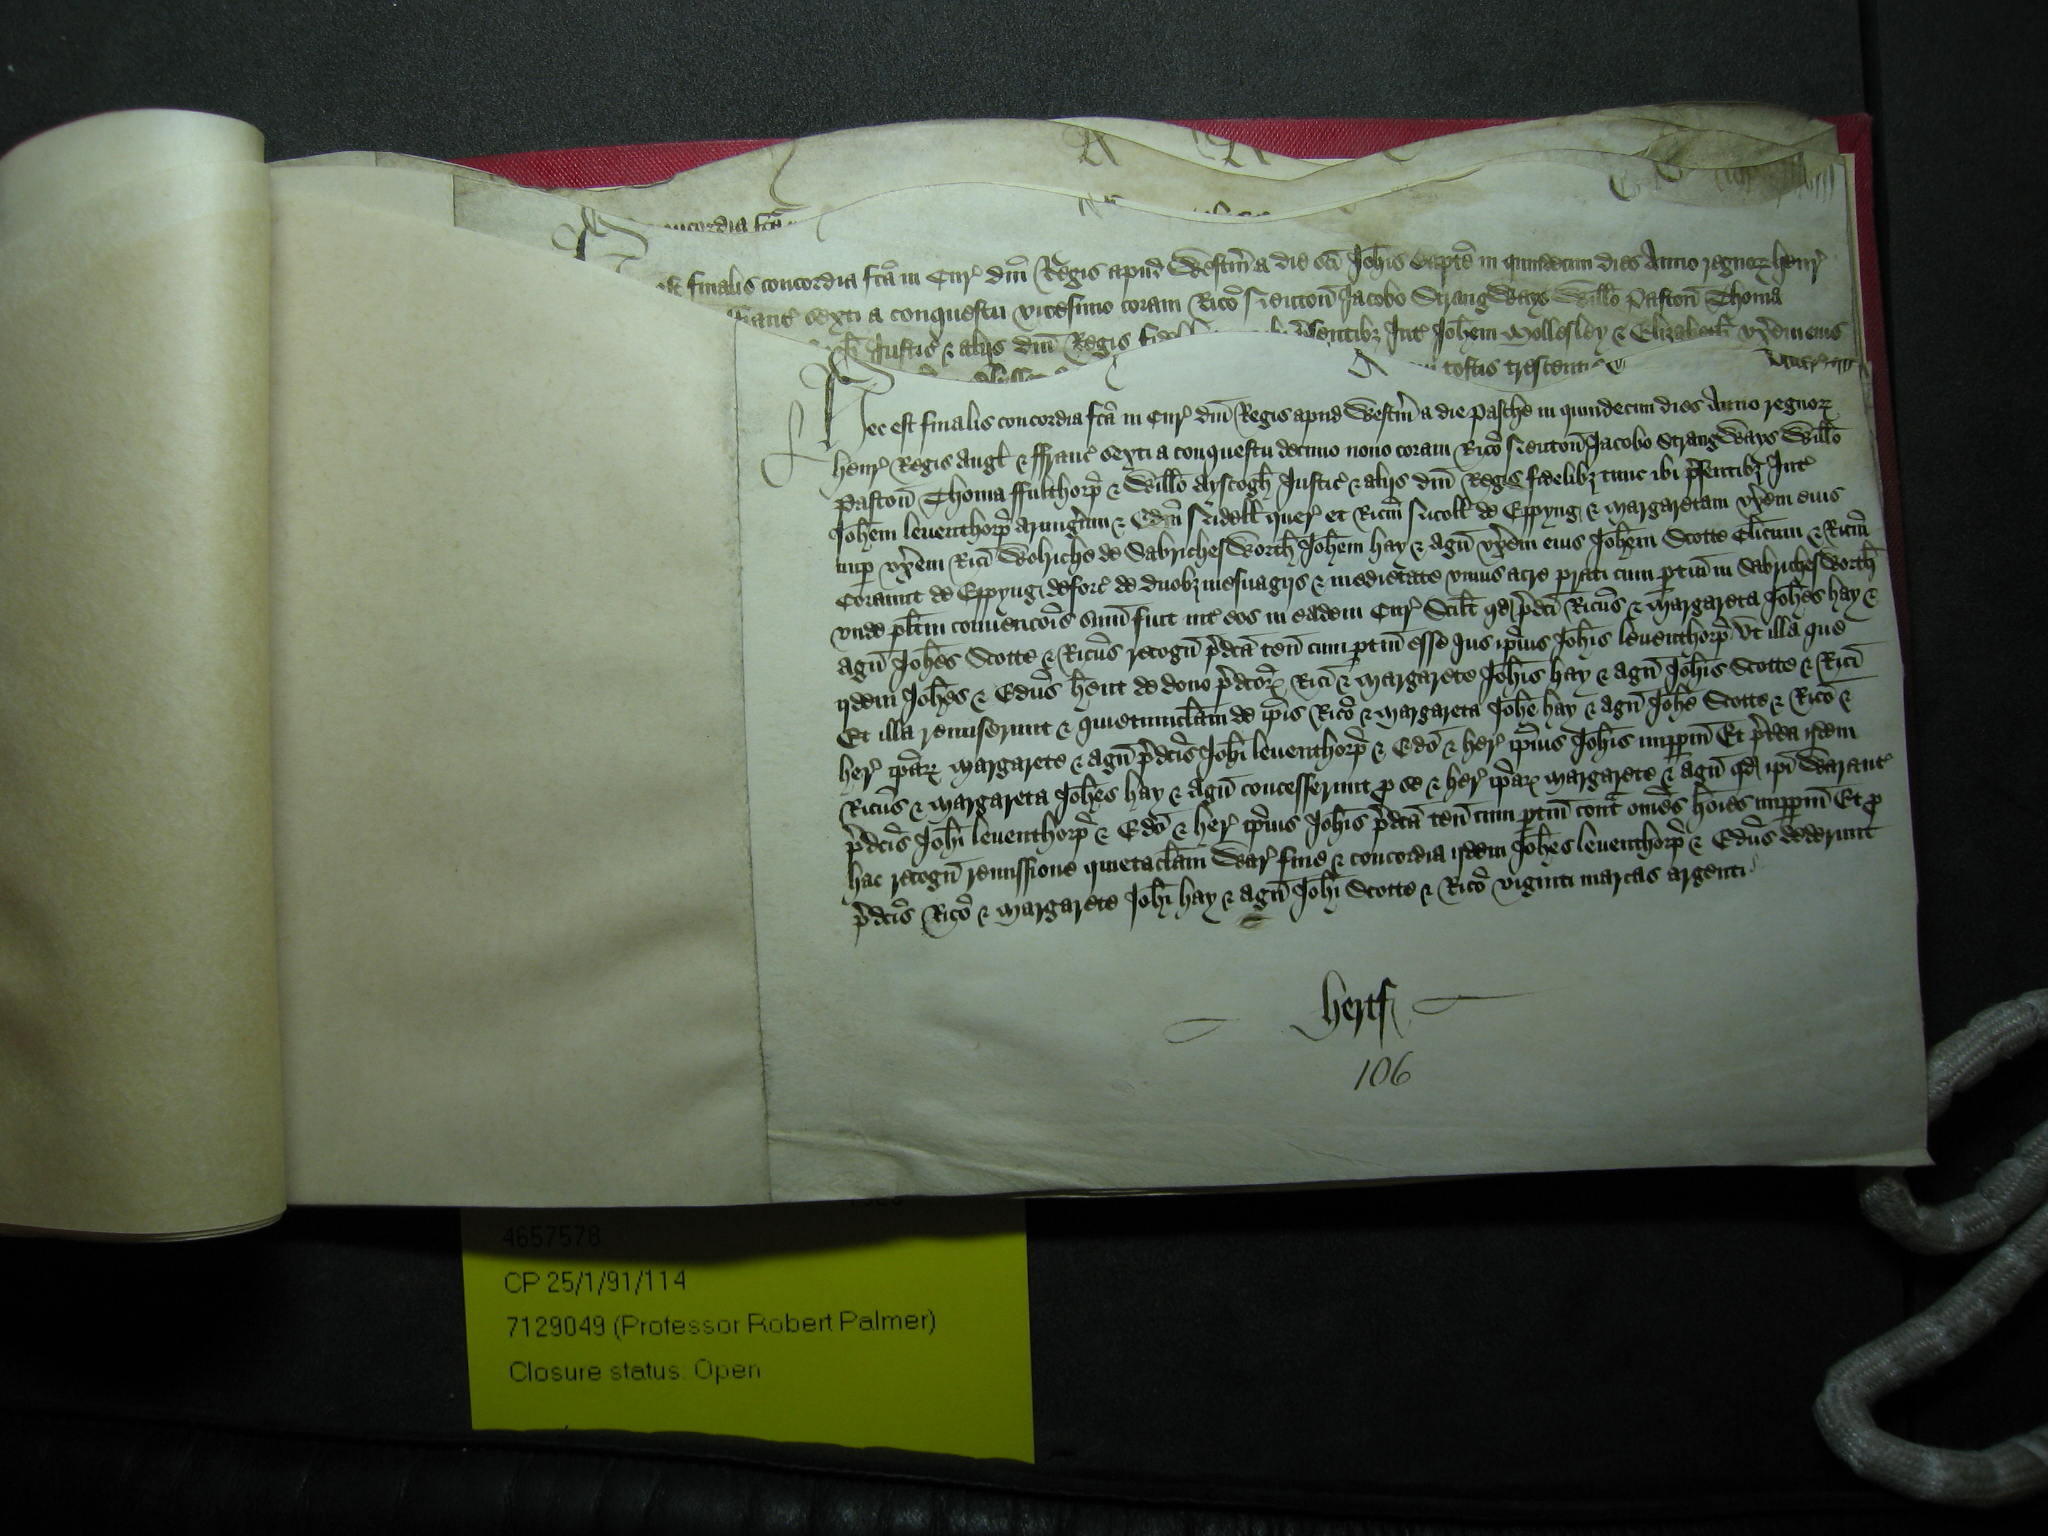 concordia fcā
finalis concordia fcā in Cur dnī Regis apud Westm̄ a die sci Joh̄is Bapte in quindecim dies Anno regnoꝝ henr
Franc sexti a conquestu vicesimo coram Rico Neuton Jacobo Strangways Willo Paston Thoma
Justic & alijs dnī Regis int Joh̄em Wollesley & Elizabeth vx̄em eius
toftis trescent
Hec est finalis concordia fcā in Cur dnī Regis apud Westm̄ a die Pasche in quindecim dies Anno regnoꝝ
henr Regis Angl & ffranc sexti a conquestu decimo nono coram Rico Neuton Jacobo Strangways Willo
Paston Thoma ffulthorp & Willo Ayscogh Justic & alijs dnī Regis fidelibꝫ tunc ibi p̄sentibꝫ Int
Joh̄em leuenthorp armiḡum & Edm̄ quer et Ricm̄ Nicoll de Eppyng & Margaretam vx̄em eius
nup vx̄em Rici Wolriche de Sabrichesworth Joh̄em hay & Agn̄ vx̄em eius Joh̄em Scotte Clicum & Ricm̄
de Eppyng deforc de duobꝫ mesuagijs & medietate vnius acre prati cum ptin̄ in Sabrichesworth
vnde plitm̄ conuencōis sum̄ fuit int eos in eadem Cur Scilt qd p̄dci Ricus & Margareta Joh̄es hay &
Agn̄ Joh̄es Scotte & Ricus recogn̄ p̄dcā ten̄ cum ptin̄ esse Jus ip̄ius Joh̄is leuenthorp vt illa que
ijdem Joh̄es & Edus h̄ent de dono p̄dcoꝝ Rici & Margarete Joh̄is hay & Agn̄ Joh̄is Scotte & Rici
Et illa remiserunt & quietumclam̄ de ip̄is Rico & Margareta Joh̄e hay & Agn̄ Joh̄e Scotte & Rico &
her ip̄aꝝ Margarete & Agn̄ p̄dcis Joh̄i leuenthorp & Edo & her ip̄ius Joh̄is imppm̄ Et p̄terea ijdem
Ricus & Margareta Joh̄es hay & Agn̄ concesserunt p se & her ip̄aꝝ Margarete & Agn̄ qd ip̄i Warant
p̄dcis Joh̄i leuenthorp & Edo & her ip̄ius Joh̄is p̄dcā ten̄ cum ptin̄ cont̄ om̄es ho͞ies imppm̄ Et p
hac recogn̄ remissione quietaclam̄ War fine & concordia ijdem Joh̄es leuenthorp & Edus dederunt
p̄dcis Rico & Margarete Joh̄i hay & Agn̄ Joh̄i Scotte & Rico viginti marcas argenti
hertf
106
4657578
CP 25/1/91/114
7129049 (Professor Robert Palmer)
Closure status: Open